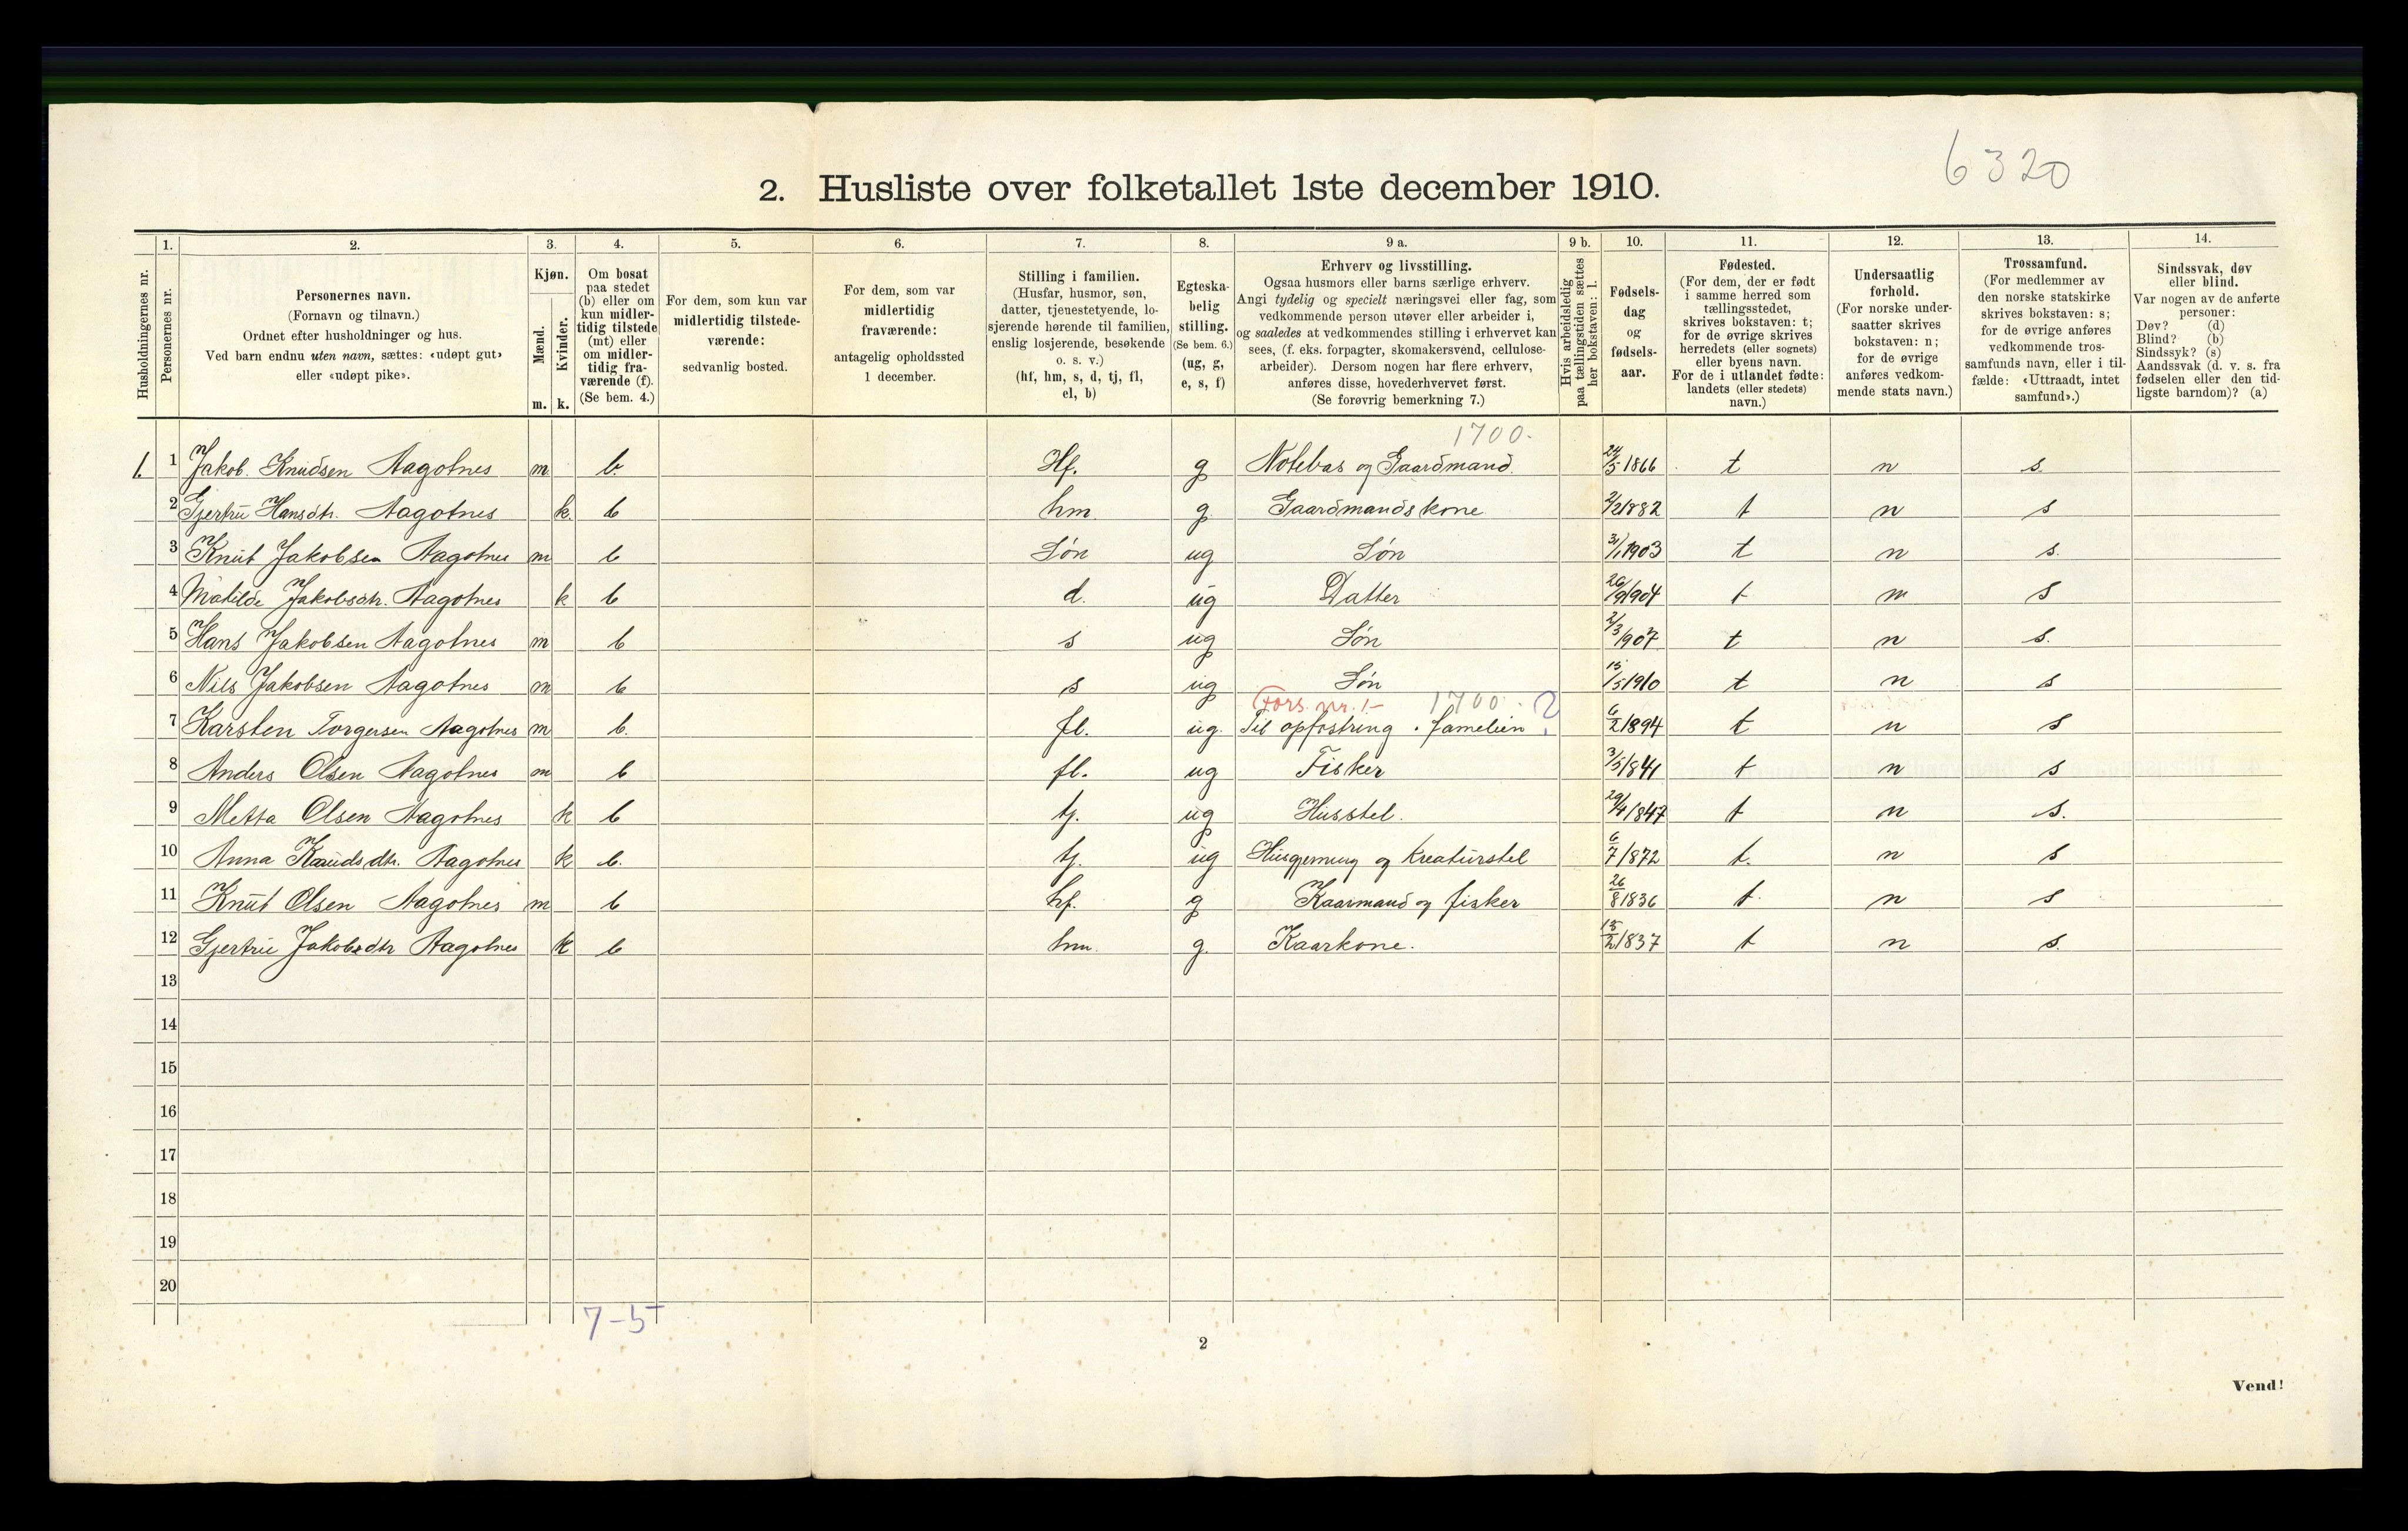 6320
2. Husliste over folketallet 1ste december 1910.
Husholdningernes nr.
1. Personernes nr.
2. Personernes navn. (Fornavn og tilnavn.) Ordnet efter husholdninger og hus. Ved barn endnu uten navn, sættes: «udøpt gut» eller «udøpt pike».
3. Kjøn. Mænd. m. Kvinder. k.
4. Om bosat paa stedet (b) eller om kun midlertidig tilstede (mt) eller om midlertidig fraværende (f). (Se bem. 4.)
5. For dem, som kun var midlertidig tilstedeværende: sedvanlig bosted.
6. For dem, som var midlertidig fraværende: antagelig opholdssted 1 december.
7. Stilling i familien. (Husfar, husmor, søn, datter, tjenestetyende, losjerende hørende til familien, enslig losjerende, besøkende o. s. v.) (hf, hm, s, d, tj, fl, el, b)
8. Egteskabelig stilling. (Se bem. 6.) (ug, g, e, s, f)
9 a. Erhverv og livsstilling. Ogsaa husmors eller barns særlige erhverv. Angi tydelig og specielt næringsvei eller fag, som vedkommende person utøver eller arbeider i, og saaledes at vedkommendes stilling i erhvervet kan sees, (f. eks. forpagter, skomakersvend, cellulosearbeider). Dersom nogen har flere erhverv, anføres disse, hovederhvervet først. (Se forøvrig bemerkning 7.)
9 b. Hvis arbeidsledig paa tællingstiden sættes her bokstaven: l.
10. Fødselsdag og fødselsaar.
11. Fødested. (For dem, der er født i samme herred som tællingsstedet, skrives bokstaven: t; for de øvrige skrives herredets (eller sognets) eller byens navn. For de i utlandet fødte: landets (eller stedets) navn.)
12. Undersaatlig forhold. (For norske undersaatter skrives bokstaven: n; for de øvrige anføres vedkommende stats navn.)
13. Trossamfund. (For medlemmer av den norske statskirke skrives bokstaven: s; for de øvrige anføres vedkommende trossamfunds navn, eller i tilfælde: «Uttraadt, intet samfund».)
14. Sindssvak, døv eller blind. Var nogen av de anførte personer: Døv? (d) Blind? (b) Sindssyk? (s) Aandssvak (d. v. s. fra fødselen eller den tidligste barndom)? (a)
1700.
1. 1 Jakob. Knudsen Aagotnes m b. Hf. g Notebas og Gaardmand. 24/5 1866 t n s.
2 Gjertrü Hansdtr. Aagotnes k. b hm g Gaardmandskone 2/2 1882 t n s
3 Knut Jakobsen Aagotnes m b Søn ug Søn 31/1 1903 t n s.
4 Matilde Jakobsdtr. Aagotnes k b d. ug Datter 26/9 1904 t n s
5 Hans Jakobsen Aagotnes m b s ug Søn 2/3 1907 t n s.
6 Nils Jakobsen Aagotnes m b s ug Søn 15/5 1910 t n s
Fors. nr. 1- 1700. ?
7 Karsten Torgersen Aagotnes m b. fl. ug. Til opfostring i famelien 6/2 1894 t n s
8 Anders Olsen Aagotnes m b fl. ug Fisker 3/5 1841 t n s
9 Metta Olsen Aagotnes k b tj. ug Husstel. 29/4 1847 t n s.
10 Anna Knudsdtr. Aagotnes k b. tj. ug Husgjerning og Kreaturstel 6/7 1872 t. n s
11 Knut Olsen Aagotnes m b hf. g Kaarmand og fisker 26/8 1836 t n s
12 Gjertrü Jakobsdtr Aagotnes k b hm. g. Kaarkone. 15/2 1837 t n s.
13
14
15
16
17
18
19
20
7-5
2
Vend!